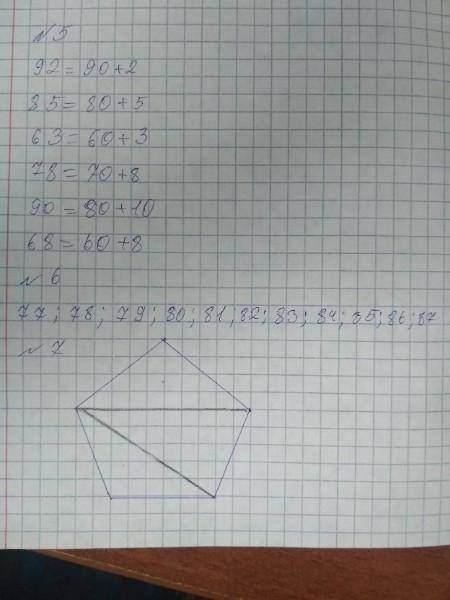 № 5
92 = 90 + 2
85 = 80 + 5
63 = 60 + 3
78 = 70 + 8
90 = 80 + 10
68 = 60 + 8
№ 6
77; 78; 79; 80; 81; 82; 83; 84; 85; 86; 87
№ 7